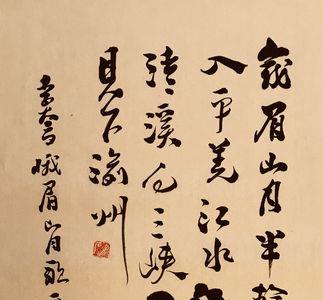 峨眉山月半輪
入平羌江水
清溪向三峽
見下渝州
峨眉山月歌